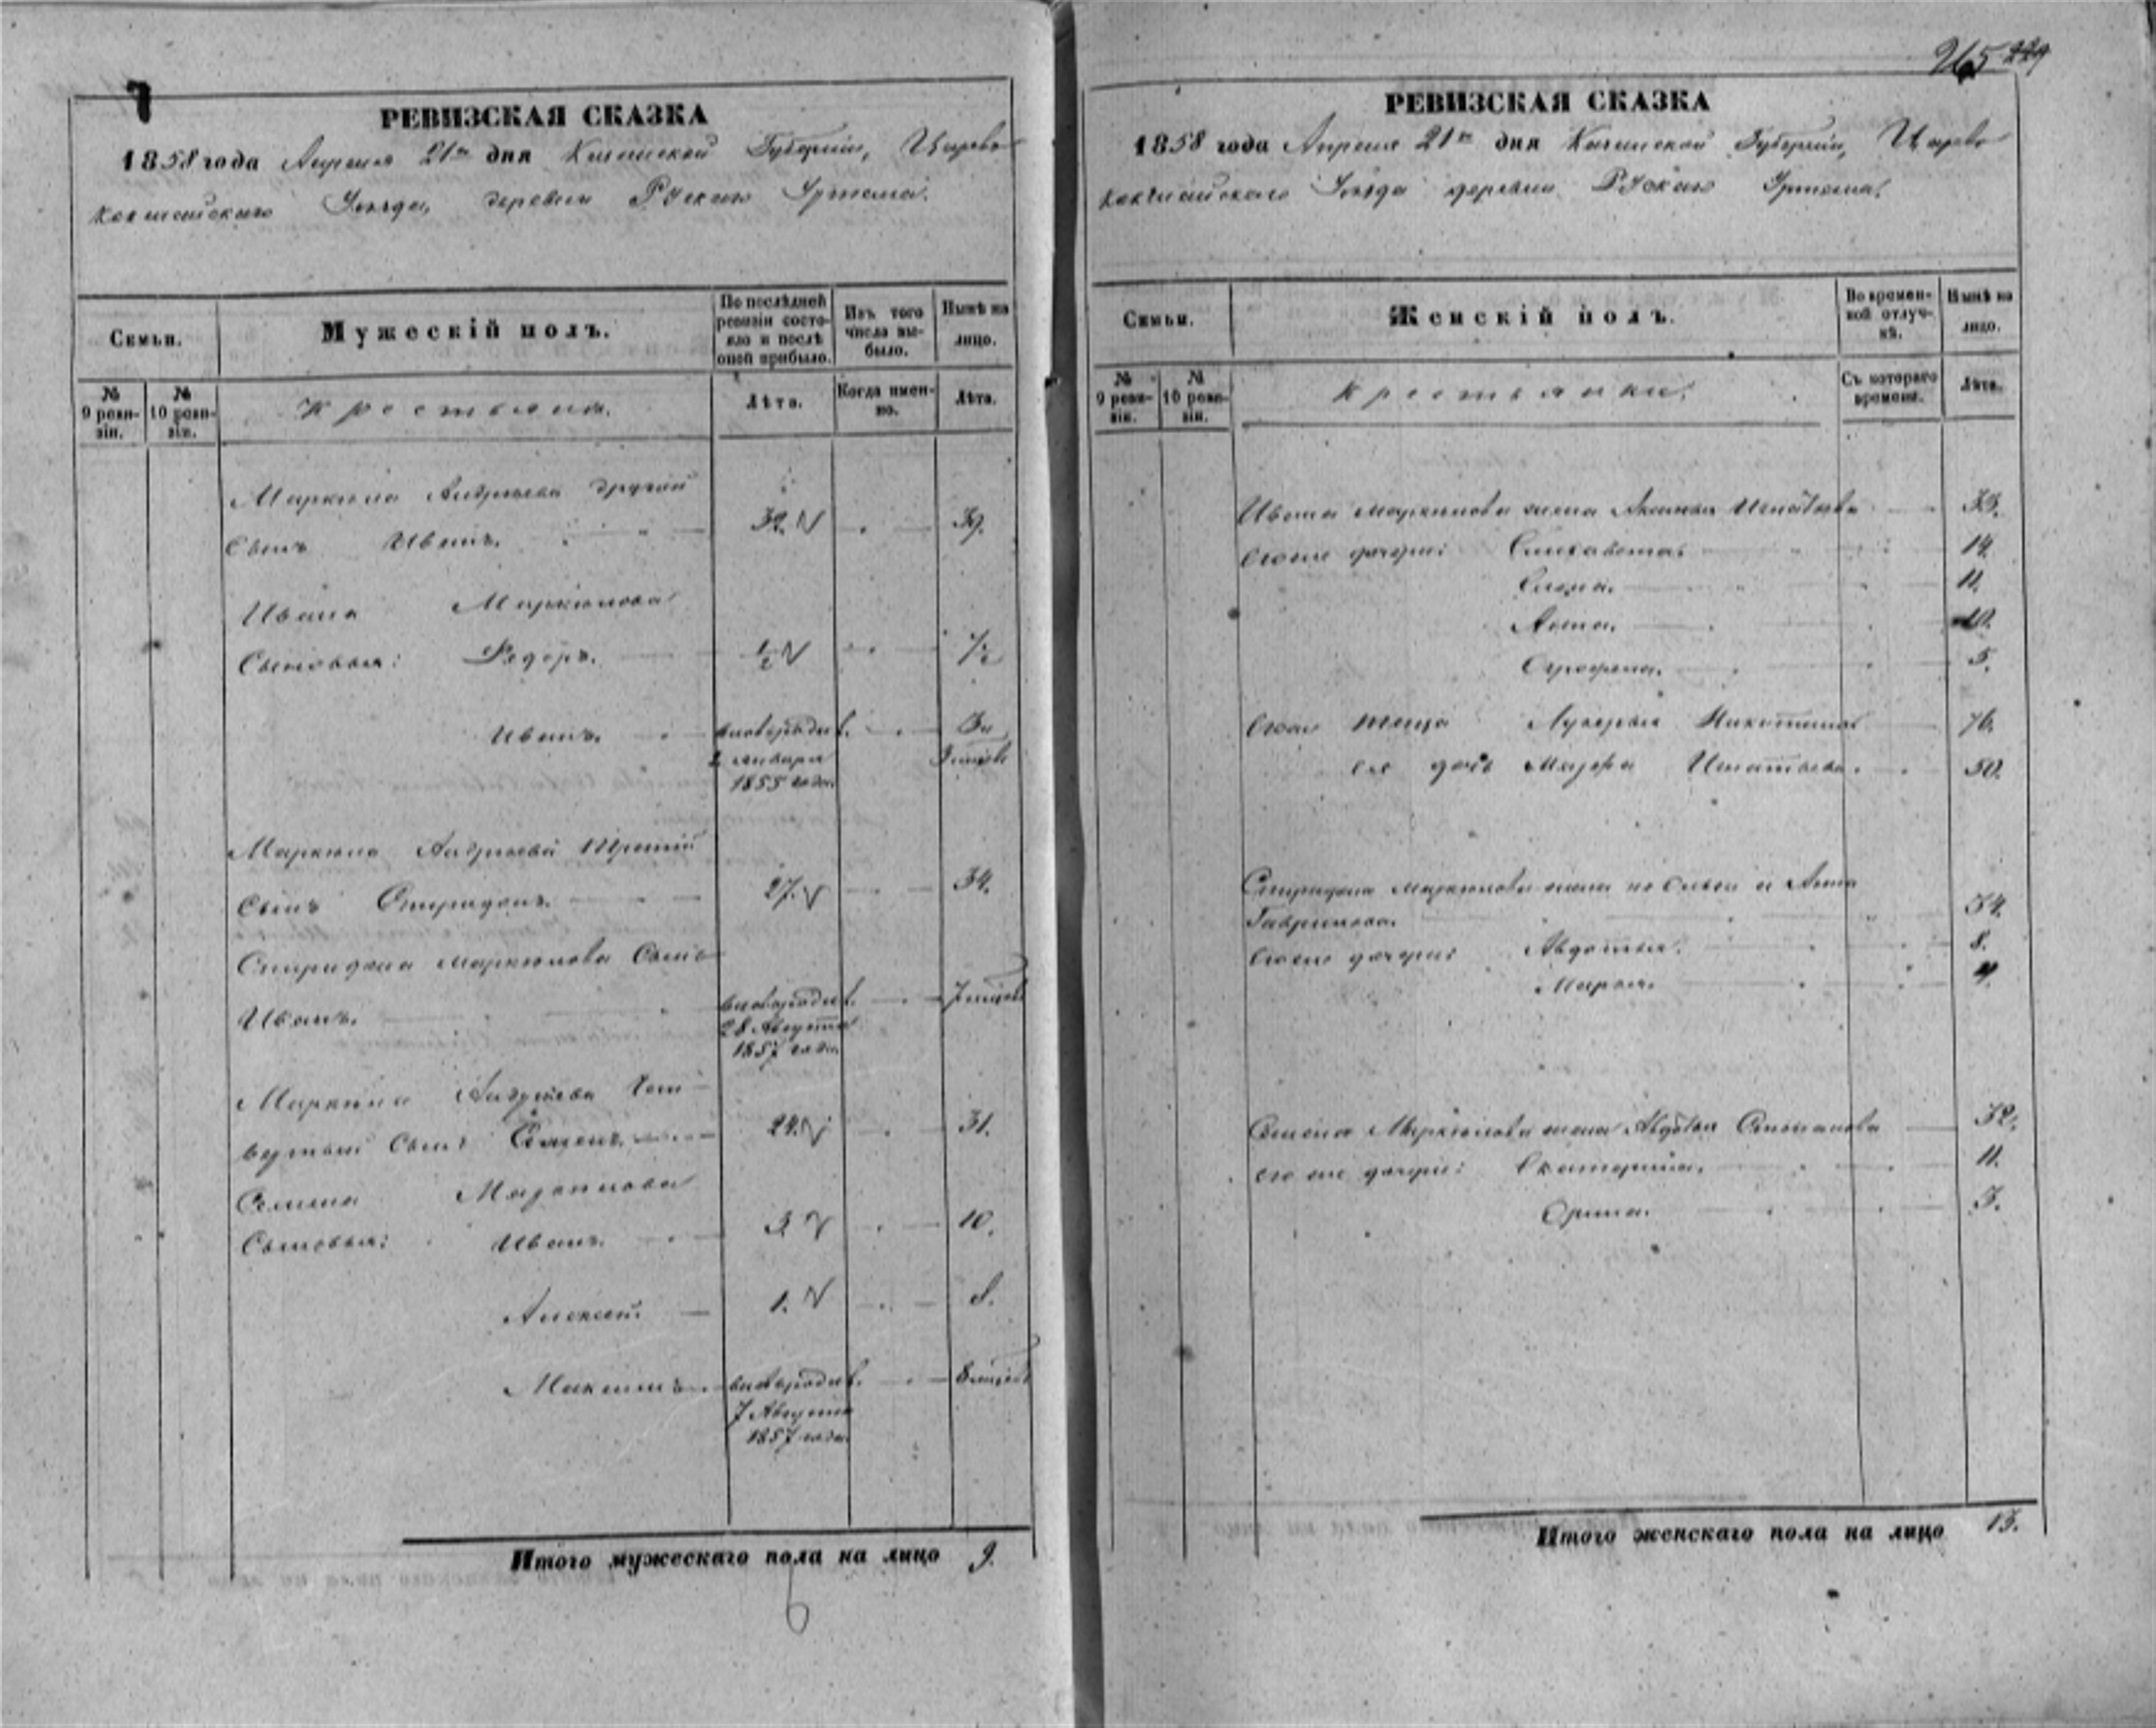 265 229
РЕВИЗСКАЯ СКАЗКА
1858 года Апреля 21го дня Казанской Губерніи, Царево
кокшайскаго Уѣзда, деревни Рускаго Уртема.
Семьи.
Мужескій полъ.
По послѣдней ревизіи состояло и послѣ оной прибыло.
Изъ того числа выбыло.
Нынѣ на лицо.
№ 9 ревизіи.
№ 10 ревизіи.
Крестьяне.
Лѣта.
Когда именно.
Лѣта.
Маркела Андреева другой
Сынъ Иванъ. 32. 39.
Ивана Маркелова
Сыновья: Федоръ. 1/2 7 1/2
Иванъ. вновьродив. 3и
2 января 9 мѣсяц
1855 года.
Маркела Андреева третій
Сынъ Спиридонъ. 27. 34.
Спиридона Маркелова Сынъ
Иванъ. вновьродив. 7 мѣсяц
28 Августа
1857 года
Маркела Андреева Чет
вертый Сынъ Семенъ. 24. 31.
Семена Маркелова
Сыновья: Иванъ. 3. 10.
Алексей. 1. 8.
Максимъ. вновьродив. 8 мѣсяц
7 Августа
1857 года
Итого мужескаго пола на лицо 9.
6
РЕВИЗСКАЯ СКАЗКА
1858 года Апреля 21го дня Казанской Губерніи, Царево
кокшайскаго Уѣзда деревни Рускаго Уртема.
Семьи.
Женскій полъ.
Во временной отлучкѣ.
Нынѣ на лицо.
№ 9 ревизіи.
№ 10 ревизіи.
Крестьянки.
Съ котораго времени.
Лѣта.
Ивана Маркелова жена Акулина Игнатьева 33.
Его же дочери: Елисавета. 14.
Елена. 11.
Анна. 10.
Аграфена. 5.
Его теща Лукерья Никитина 76.
ее дочь Марфа Игнатьева. 50.
Спиридона Маркелова жена Анна
Гаврилова. 34.
Его же дочери: Авдотья. 8.
Марья. 4.
Семена Маркелова жена Авдотья Степанова 32.
его же дочери: Екатерина. 11.
Орина. 3.
Итого женскаго пола на лицо 13.